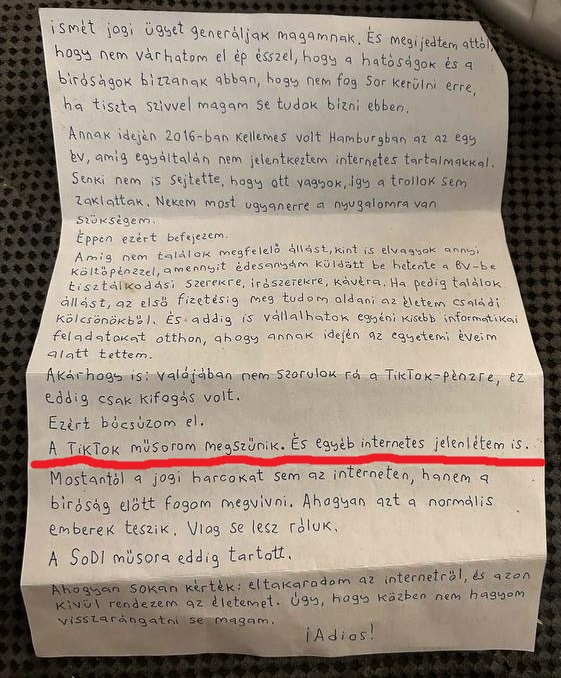 ismét jogi ügyet generáljak magamnak. És megijedtem attól,
hogy nem várhatom el ép ésszel, hogy a hatóságok és a
bíróságok bízzanak abban, hogy nem fog sor kerülni erre,
ha tiszta szívvel magam se tudok bízni ebben.
Annak idején 2016-ban kellemes volt Hamburgban az az egy
év, amíg egyáltalán nem jelentkeztem internetes tartalmakkal.
Senki nem is sejtette, hogy ott vagyok, így a trollok sem
zaklattak. Nekem most ugyanerre a nyugalomra van
szükségem.
Éppen ezért befejezem.
Amíg nem találok megfelelő állást, kint is elvagyok annyi
költőpénzzel, amennyit édesanyám küldött be hetente a BV-be
tisztálkodási szerekre, írószerekre, kávéra. Ha pedig találok
állást, az első fizetésig meg tudom oldani az életem családi
kölcsönökből. És addig is vállalhatok egyéni kisebb informatikai
feladatokat otthon, ahogy annak idején az egyetemi éveim
alatt tettem.
Akárhogy is: valójában nem szorulok rá a TikTok-pénzre, ez
eddig csak kifogás volt.
Ezért búcsúzom el.
A TikTok műsorom megszűnik. És egyéb internetes jelenlétem is.
Mostantól a jogi harcokat sem az interneten, hanem a
bíróság előtt fogom megvívni. Ahogyan azt a normális
emberek teszik. Vlog se lesz róluk.
A SoDI műsora eddig tartott.
Ahogyan sokan kérték: eltakarodom az internetről, és azon
kívül rendezem az életemet. Úgy, hogy közben nem hagyom
visszarángatni se magam.
¡Adios!